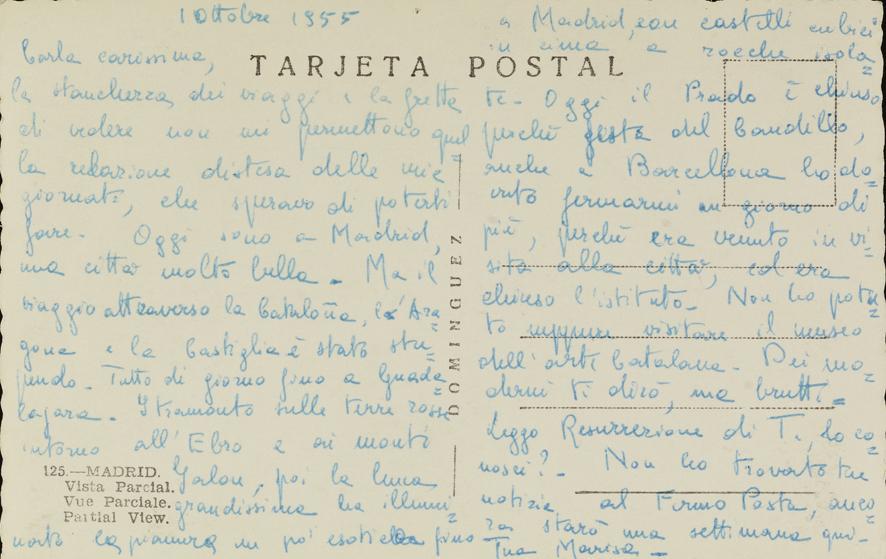 1 Ottobre 1955
TARJETA POSTAL
Carla carissima,
la stanchezza dei viaggi e la fretta
di vedere non mi permettono quel
la relazione distesa delle mie
giornate, che speravo di poterti
fare. Oggi sono a Madrid,
una città molto bella. Ma il
viaggio attraverso la Cataloña, l'Ara=
gona e la Castiglia è stato stu=
pendo. Tutto di giorno fino a Guada=
lajara. Il tramonto sulle terre rosse
intorno all'Ebro e ai monti
Jalon, poi la luna
grandissima ha illumi=
nato la pianura un po' esotica fino
a Madrid, con castelli
in cima a rocche isola=
te. Oggi il Prado è chiuso
perché festa del Caudillo,
anche a Barcellona ho do=
vuto fermarmi un giorno di
più, perché era venuto in vi=
sita alla città, ed era
chiuso l'istituto. Non ho potu=
to neppure visitare il museo
dell'arte Catalana. Dei mo=
derni ti dirò, ma brutti=
Leggo Resurrezione di T., lo co=
nosci? Non ho trovato tue
notizie al Fermo Posta, anco=
ra starò una settimana qui.
Tua Marisa
DOMINGUEZ
125.—MADRID.
Vista Parcial.
Vue Parciale.
Partial View.